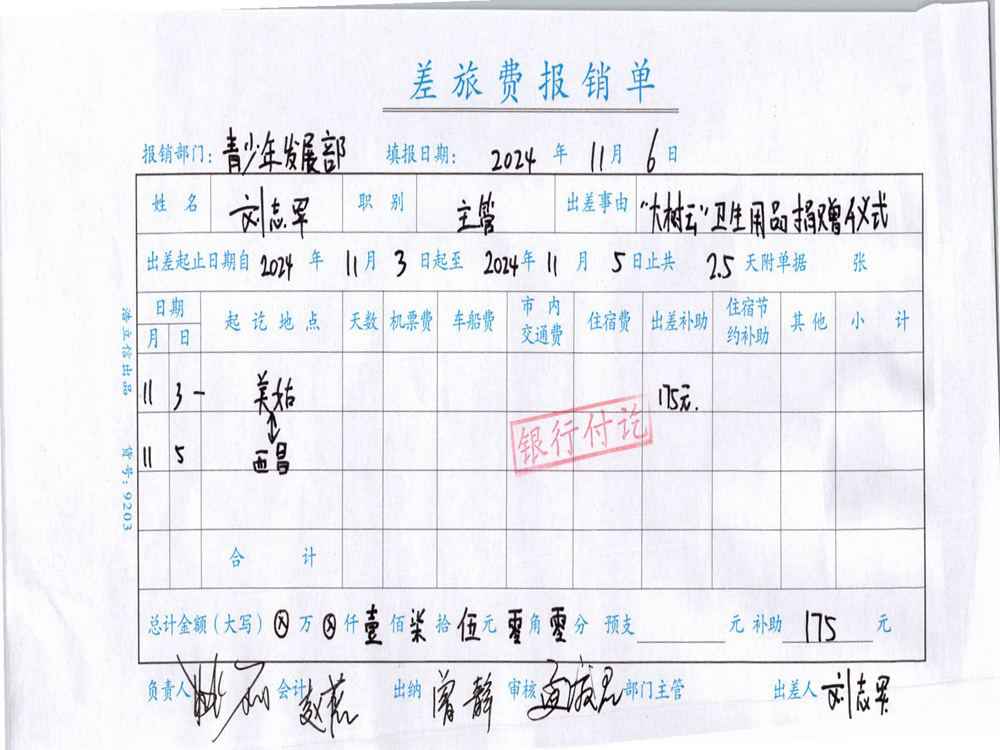 差旅费报销单
报销部门：青少年发展部 填报日期： 2024 年 11 月 6 日
姓名 刘志军 职别 主管 出差事由 "大树云"卫生用品捐赠仪式
出差起止日期自 2024 年 11 月 3 日起至 2024 年 11 月 5 日止共 2.5 天附单据 张
日期 起讫地点 天数 机票费 车船费 市内交通费 住宿费 出差补助 住宿节约补助 其他 小计
月 日
11 3 - 美姑 175元.
银行付讫
11 5 西昌
合计
总计金额（大写） ⊗ 万 ⊗ 仟 壹 佰 柒 拾 伍 元 零 角 零 分 预支 元 补助 175 元
负责人 会计 出纳 曾静 审核 部门主管 出差人 刘志军
立信出品 货号：9203